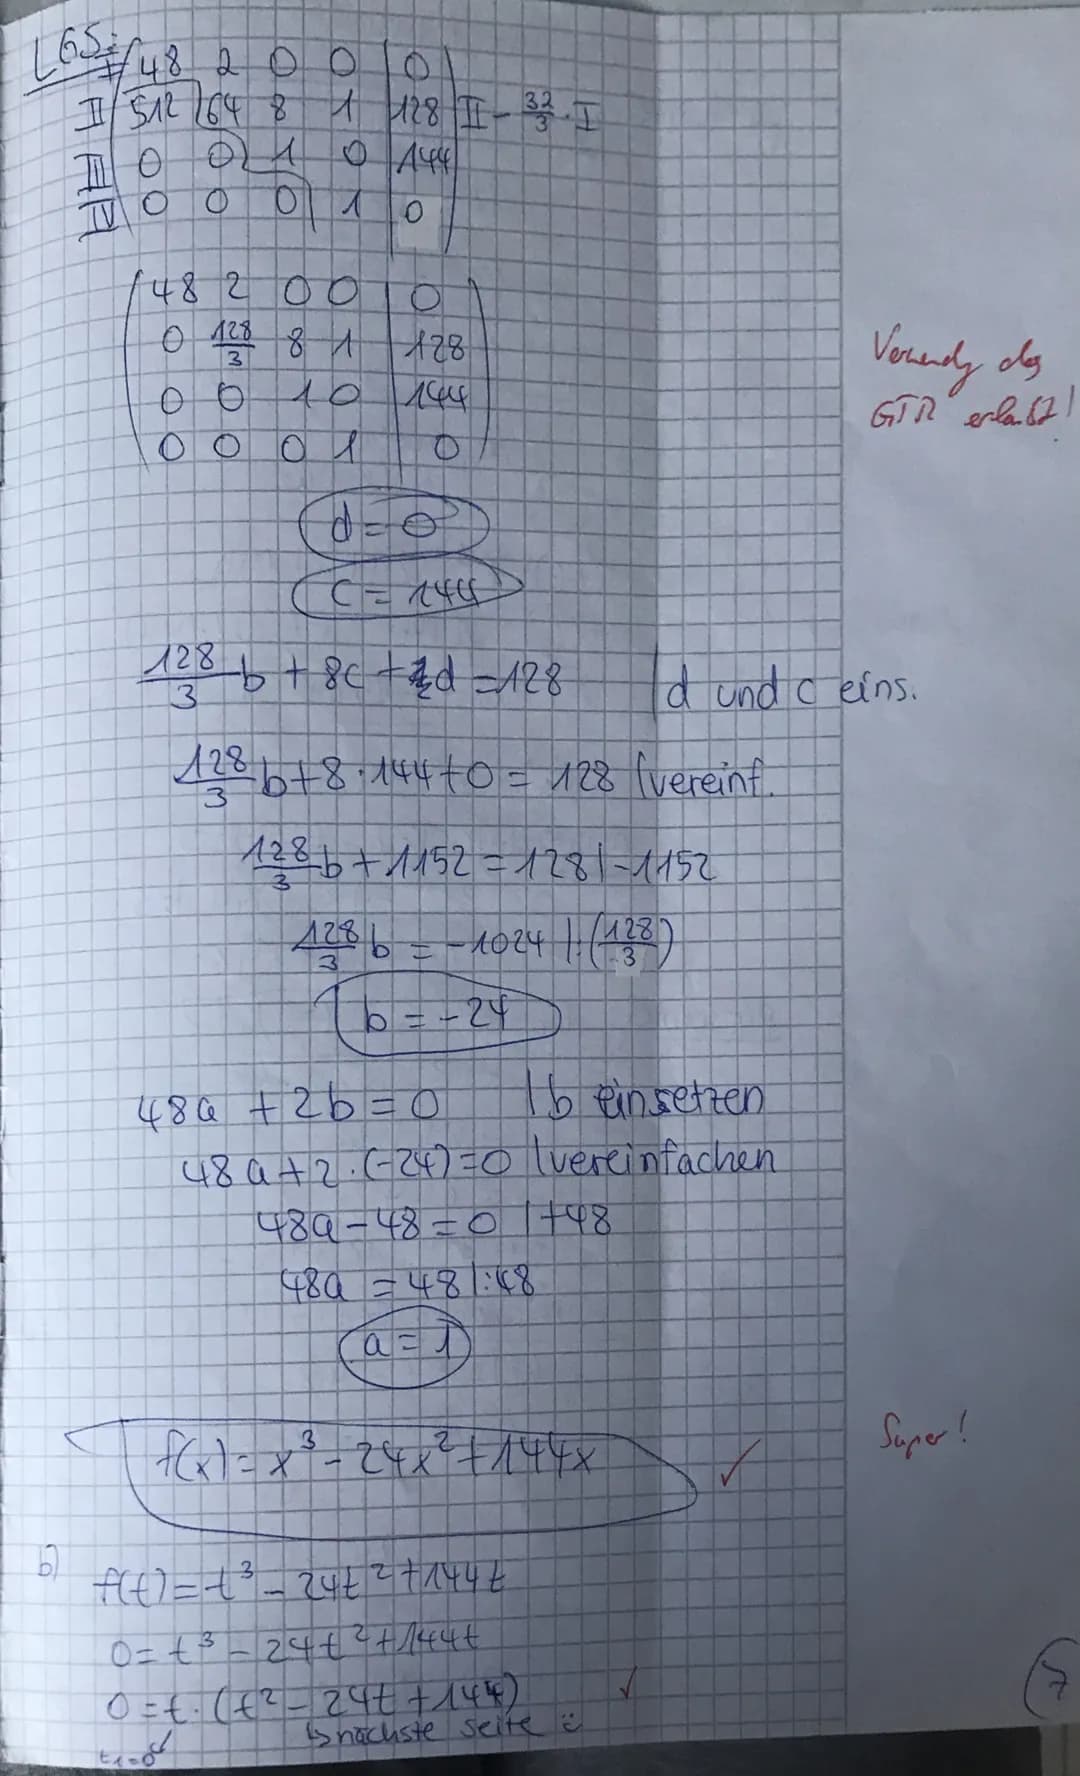 LGS:
I 48 2 0 0 | 0
II 512 64 8 1 | 128 | II - 32/3 · I
III 0 0 1 0 | 144
IV 0 0 0 1 | 0
48 2 0 0 | 0
0 128/3 8 1 | 128
0 0 1 0 | 144
0 0 0 1 | 0
Verwendg des
GTR erlaubt!
d = 0
c = 144
128/3 b + 8c + d = 128 | d und c eins.
128/3 b + 8 · 144 + 0 = 128 | vereinf.
128/3 b + 1152 = 128 | -1152
128/3 b = -1024 | : (128/3)
b = -24
48a + 2b = 0 | b einsetzen
48a + 2 · (-24) = 0 | vereinfachen
48a - 48 = 0 | +48
48a = 48 | :48
a = 1
f(x) = x³ - 24x² + 144x ✓
Super!
b) f(t) = t³ - 24t² + 144t
0 = t³ - 24t² + 144t
0 = t · (t² - 24t + 144) ✓
7
↳ nächste seite ü
t₁=0